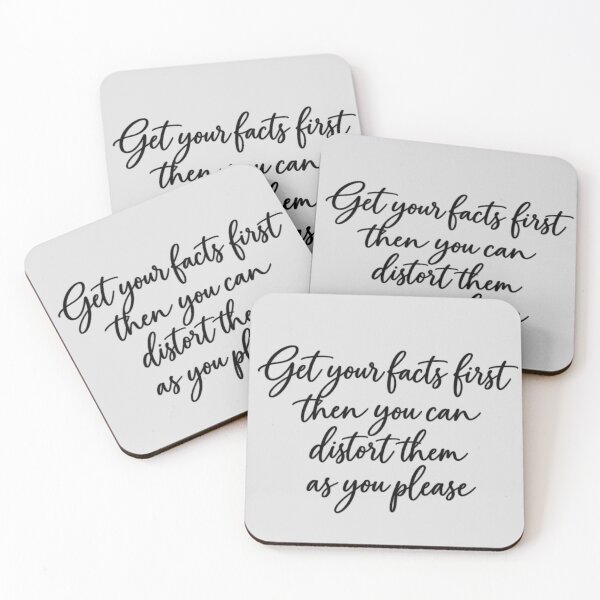 Get your facts first
then you can
Get your facts first
then you can
distort them
Get your facts first
then you can
distort the
as you ple
Get your facts first
then you can
distort them
as you please